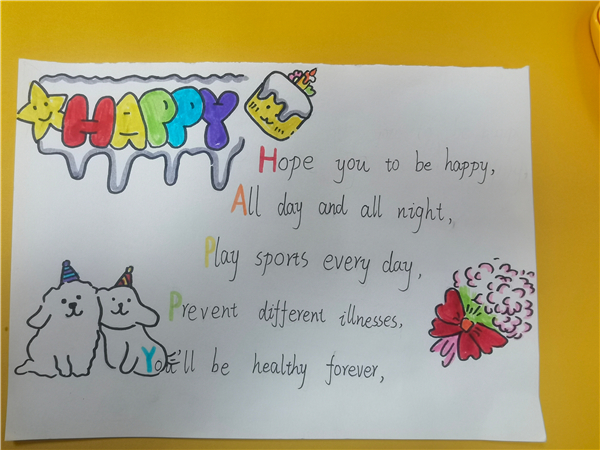 HAPPY
Hope you to be happy,
All day and all night,
Play sports every day,
Prevent different illnesses,
You'll be healthy forever,